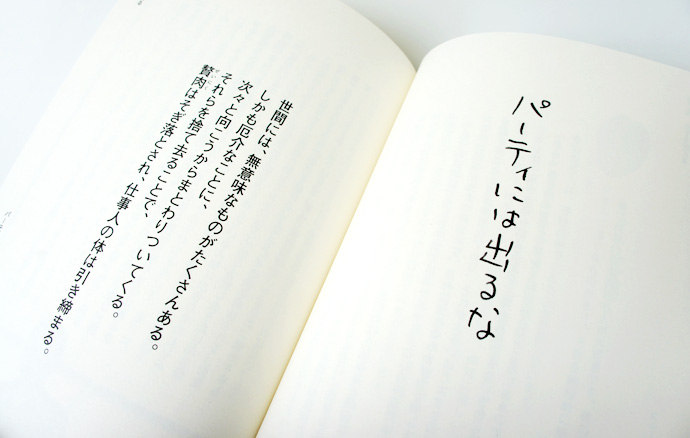 パーティには出るな
世間には、無意味なものがたくさんある。
しかも厄介なことに、
次々と向こうからまとわりついてくる。
それらを捨て去ることで、
贅肉はそぎ落とされ、仕事人の体は引き締まる。